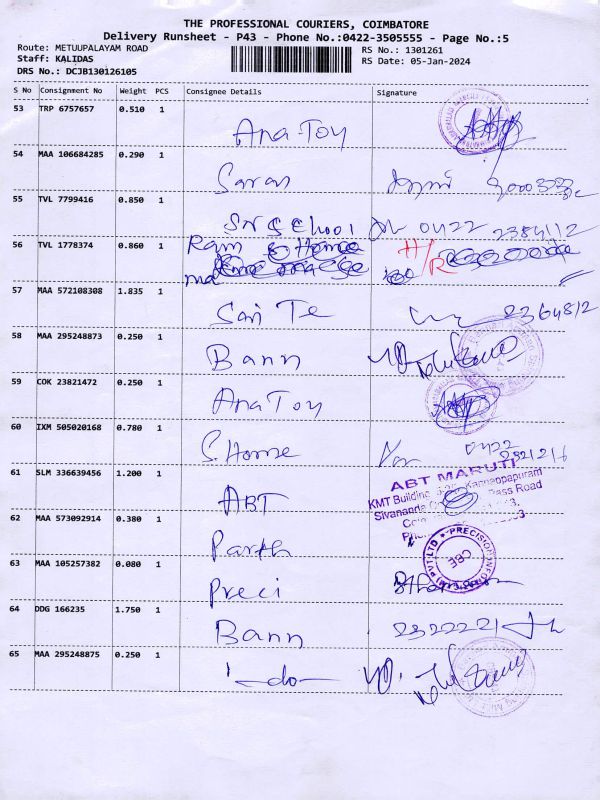 THE PROFESSIONAL COURIERS, COIMBATORE
Delivery Runsheet - P43 - Phone No.:0422-3505555 - Page No.:5
Route: METUUPALAYAM ROAD
RS No.: 1301261
Staff: KALIDAS
RS Date: 05-Jan-2024
DRS No.: DCJB130126105
S No Consignment No Weight PCS Consignee Details Signature
53 TRP 6757657 0.510 1
Ana Toy
54 MAA 106684285 0.290 1
Saran
55 TVL 7799416 0.850 1
SN School 0422 2384112
56 TVL 1778374 0.860 1
Ram
H/R
57 MAA 572108308 1.835 1
Sai Te 2364812
58 MAA 295248873 0.250 1
Bann
59 COK 23821472 0.250 1
Ana Toy
60 IXM 505020168 0.780 1
S. Home 0422
61 SLM 336639456 1.200 1
ABT
ABT MARUTI
KMT Building Kannappapuram
Pass Road
62 MAA 573092914 0.380 1
Parth
63 MAA 105257382 0.080 1
Preci
PRECISION
PVT LTD
CBE
64 DDG 166235 1.750 1
Bann 2322221
65 MAA 295248875 0.250 1
-do-